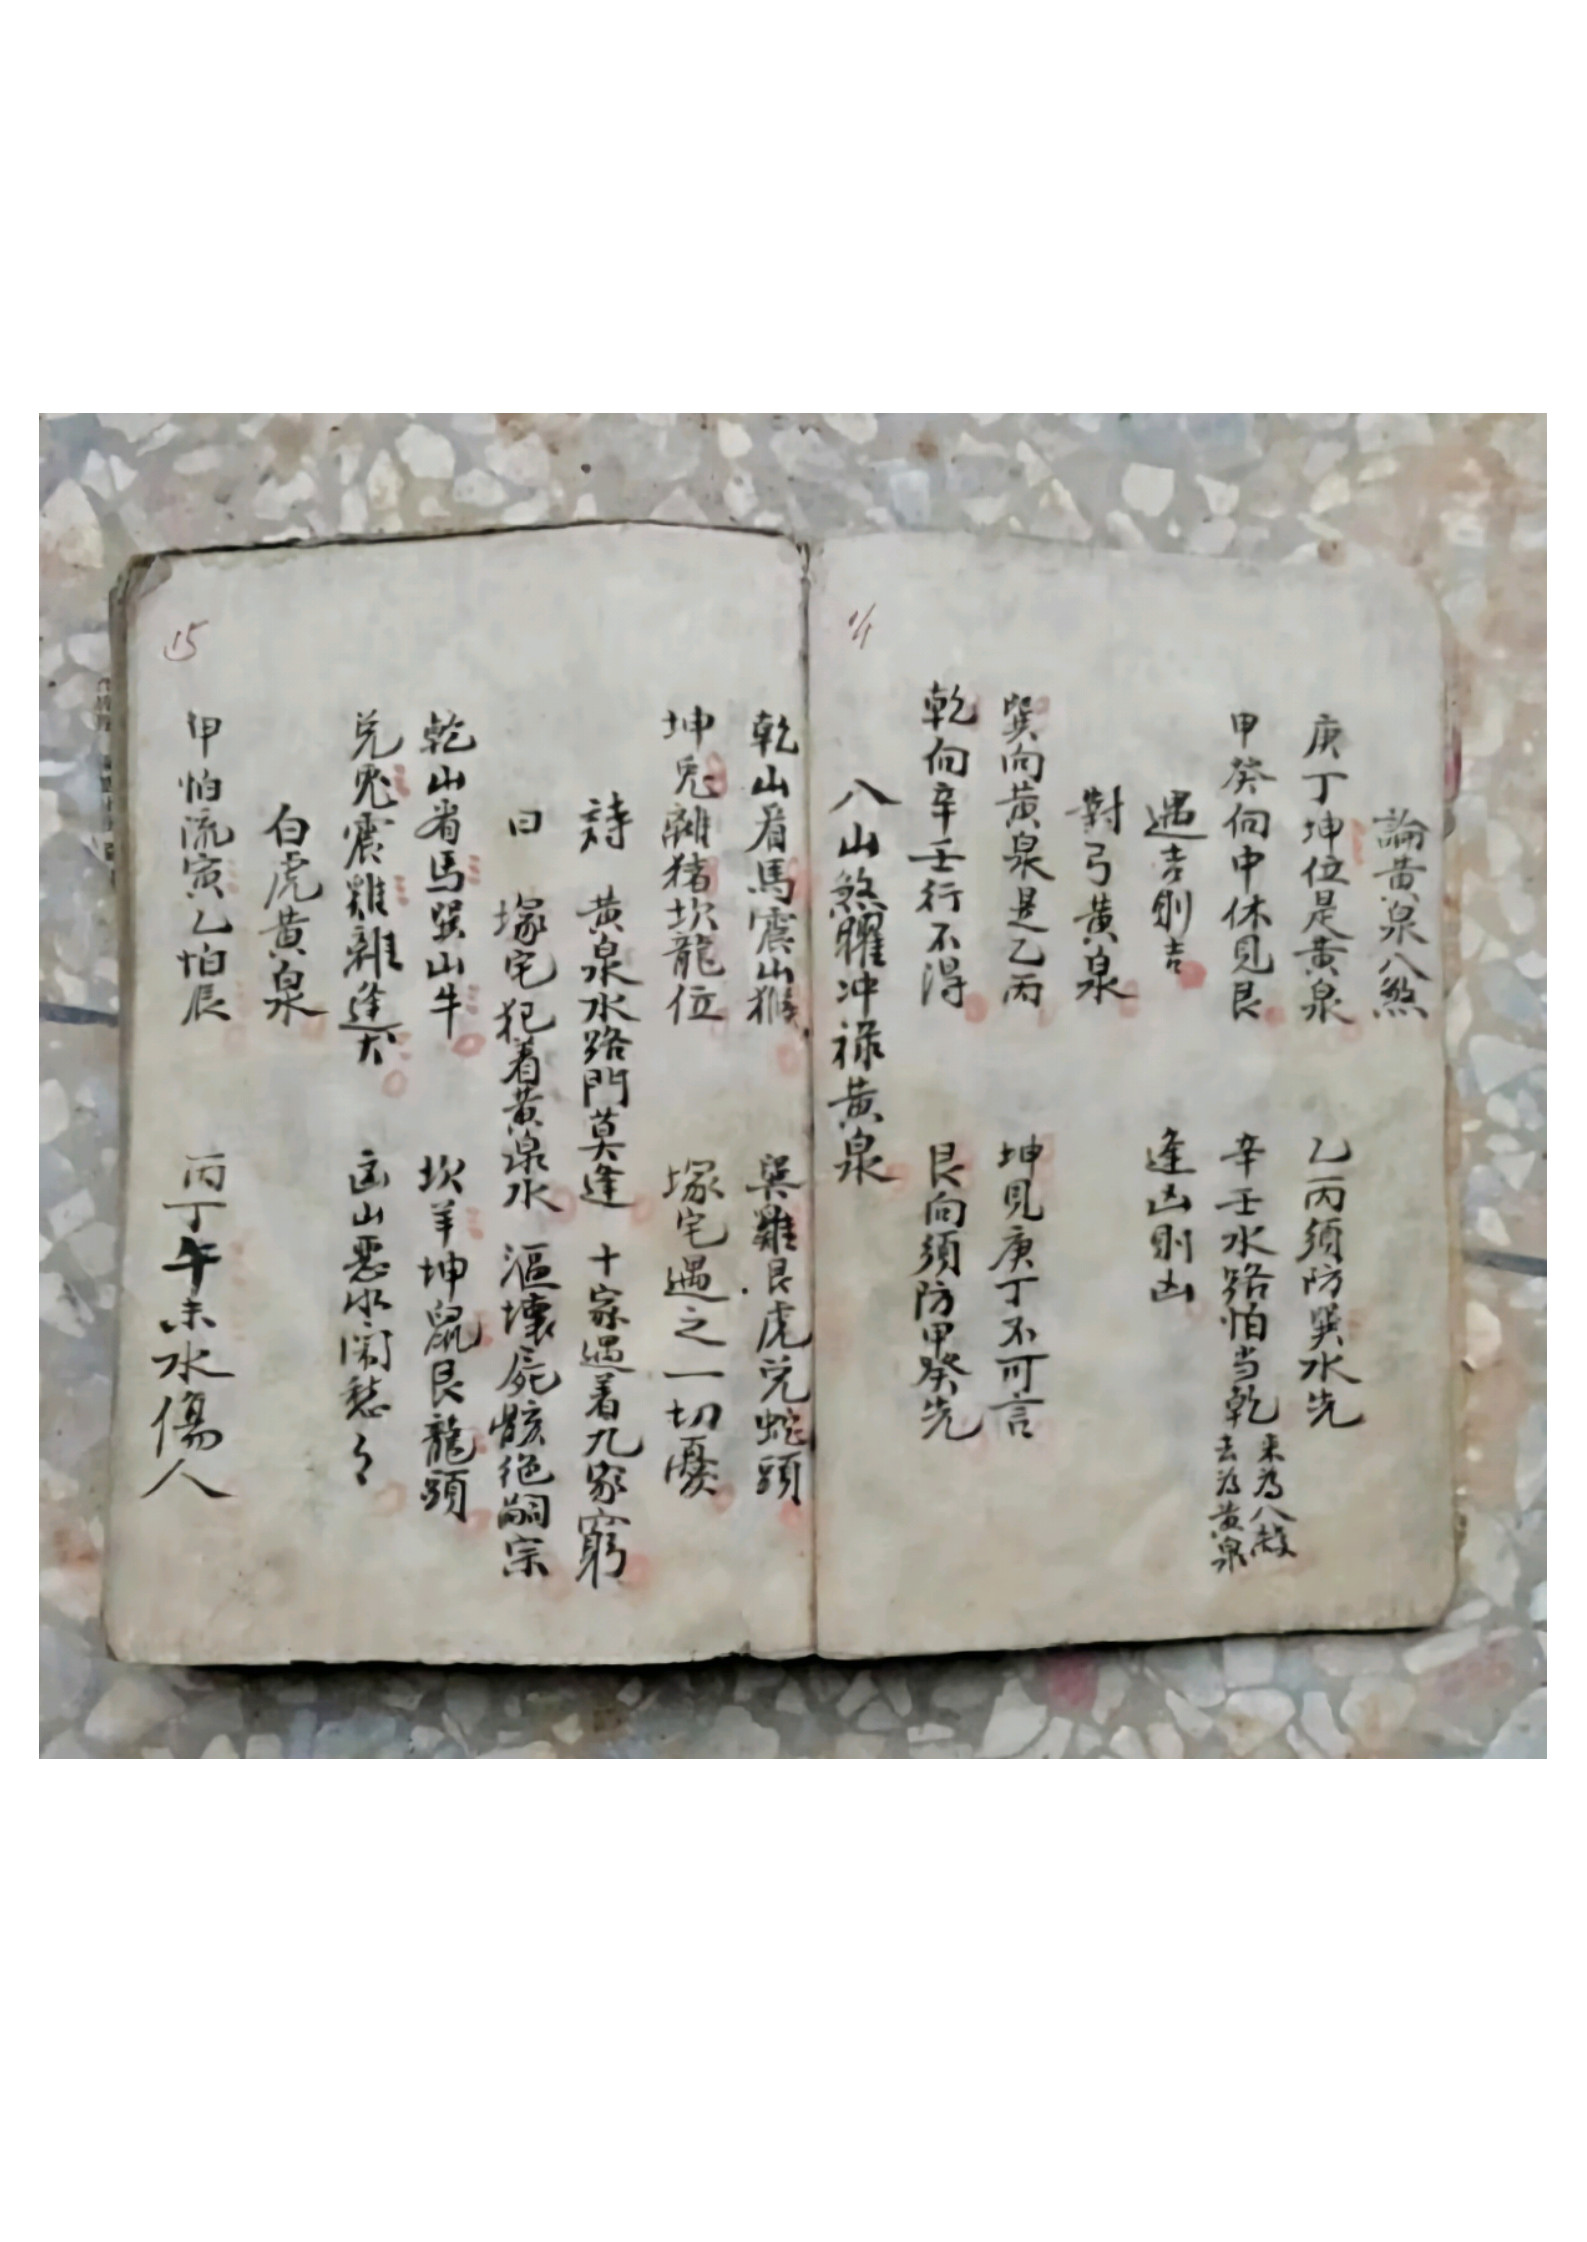 14
論黃泉八煞
庚丁坤位是黃泉 乙丙須防巽水先
甲癸向中休見艮 辛壬水路怕当乾 來為八殺
去為黃泉
遇吉則吉 逢凶則凶
對弓黃泉
巽向黃泉是乙丙 坤見庚丁不可言
乾向辛壬行不得 艮向須防甲癸先
八山煞曜冲祿黃泉
15
乾山看馬震山猴 巽雞艮虎兌蛇頭
坤兎離猪坎龍位 塚宅遇之一切憂
詩 黃泉水路門莫逢 十家遇着九家窮
曰 塚宅犯着黃泉水 漚壞屍骸绝嗣宗
乾山省馬巽山牛 坎羊坤鼠艮龍頭
兌兎震雞離逢犬 山惡水鬧愁々
白虎黃泉
甲怕流寅乙怕辰 丙丁午未水傷人